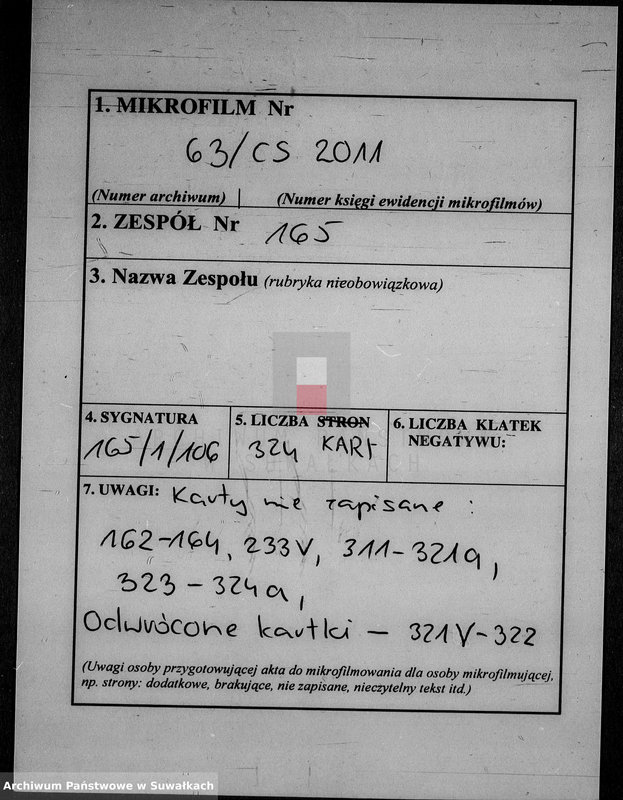 1. MIKROFILM Nr
63/CS 2011
(Numer archiwum) (Numer księgi ewidencji mikrofilmów)
2. ZESPÓŁ Nr 165
3. Nazwa Zespołu (rubryka nieobowiązkowa)
4. SYGNATURA
165/1/106
5. LICZBA STRON
324 KART
6. LICZBA KLATEK
NEGATYWU:
7. UWAGI: Karty nie zapisane :
162-164, 233V, 311-321a,
323 - 324a,
Odwrócone kartki - 321V-322
(Uwagi osoby przygotowującej akta do mikrofilmowania dla osoby mikrofilmującej,
np. strony: dodatkowe, brakujące, nie zapisane, nieczytelny tekst itd.)
Archiwum Państwowe w Suwałkach